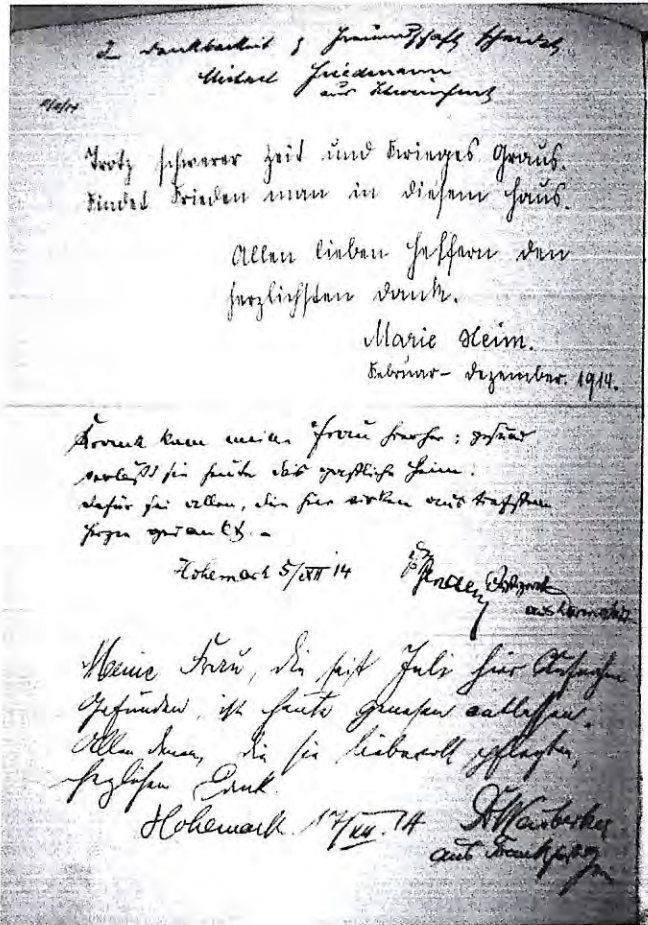 Dankbarkeit & Freundschaft scheidet
Michael Friedmann
aus Schweinfurt
Trotz schwerer Zeit und Krieges Graus.
Findet Frieden man in diesem Haus.
Allen lieben Helfern den
herzlichsten Dank.
Marie Heim.
Februar – Dezember. 1914.
Krank kam meine Frau hierher; gesund
verläßt sie heute das gastliche Heim.
Dafür sei allen, die hier wirken aus tiefstem
Herzen gedankt. –
Hohemark 5/XII 14
aus
Meine Frau, die seit Juli hier Aufnahme
gefunden, ist heute genesen entlassen.
Allen denen, die sie liebevoll pflegten,
herzlichen Dank.
Hohemark. 17/XII. 14
Dr
aus Frankfurt